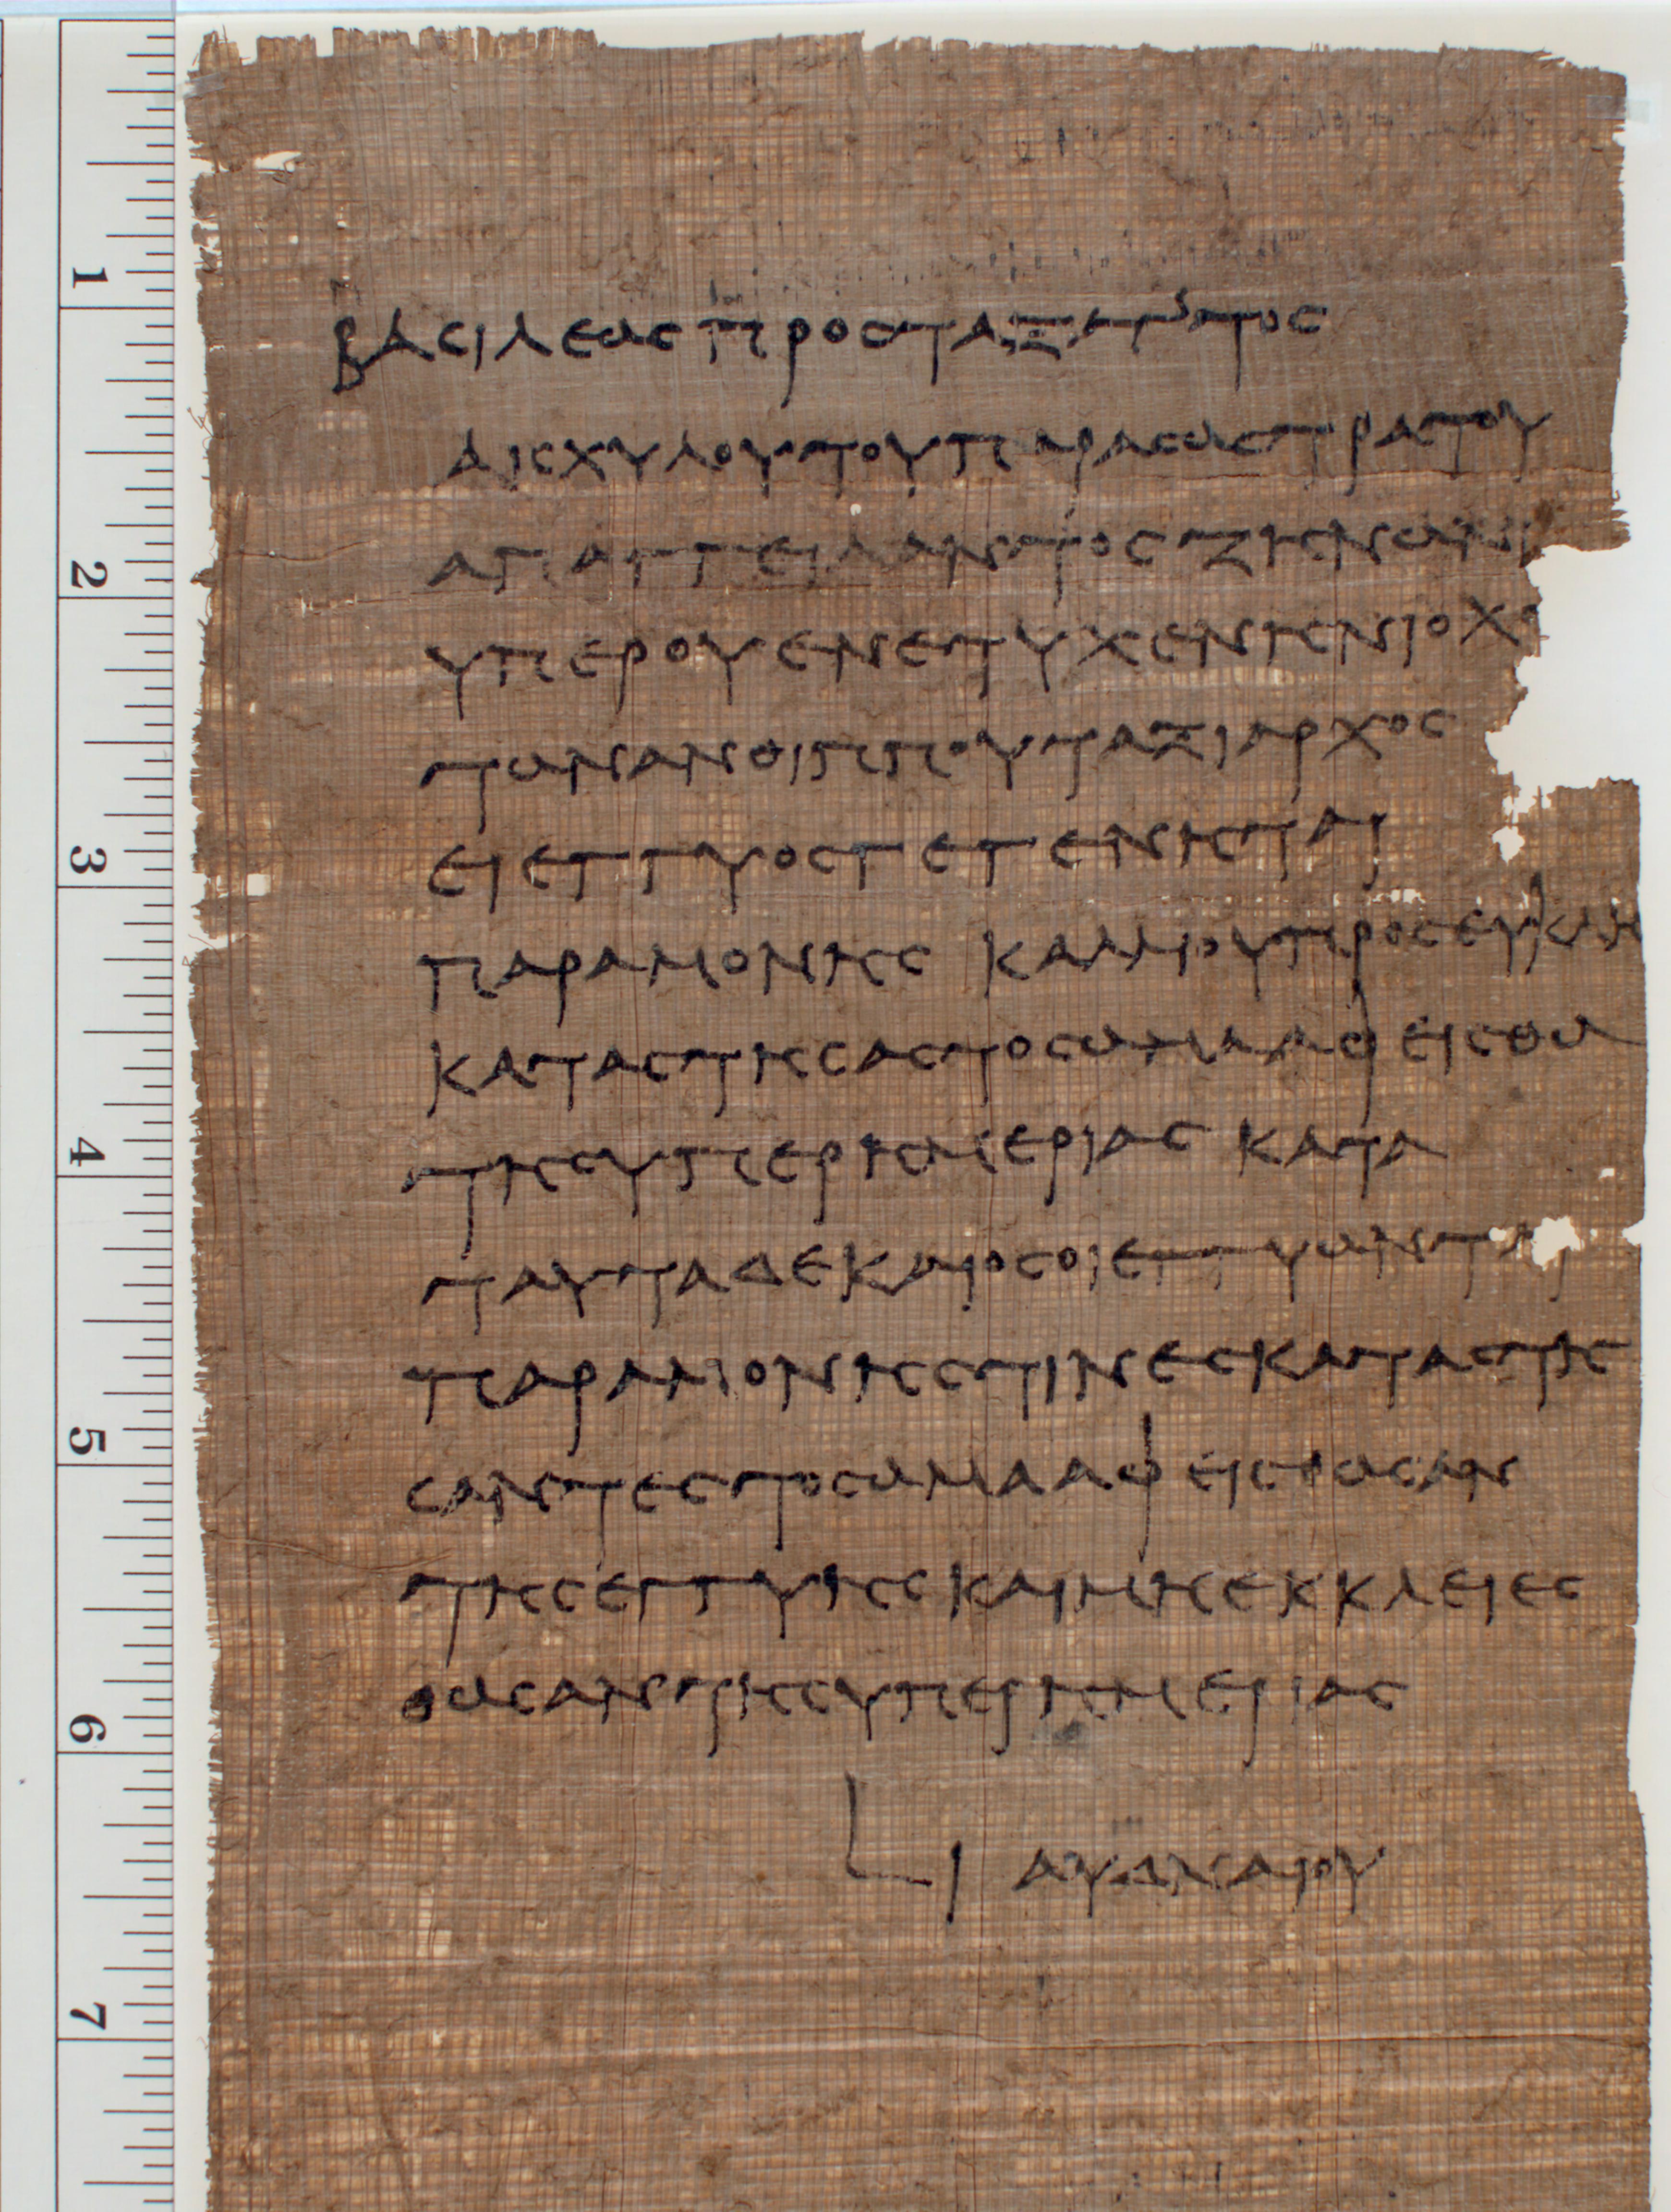 βασιλεως προσταξαντος
αισχυλου του παρα σωστρατου
απαγγειλαντος ζηνωνι
υπερ ου ενετυχεν ηνιοχο
των ανθιππου ταξιαρχος
ει εγγυος γεγενηται
παραμονης καλλιου προς
καταστησας το σωμα αφεισθω
της υπερημεριας κατα
ταυτα δε και οσοι εγγυωνται
παραμονης τινες καταστη
σαντες το σωμα αφεισθωσαν
της εγγυης και μη εκκλειεσ
θωσαν της υπερημεριας
L ι αυδναιου